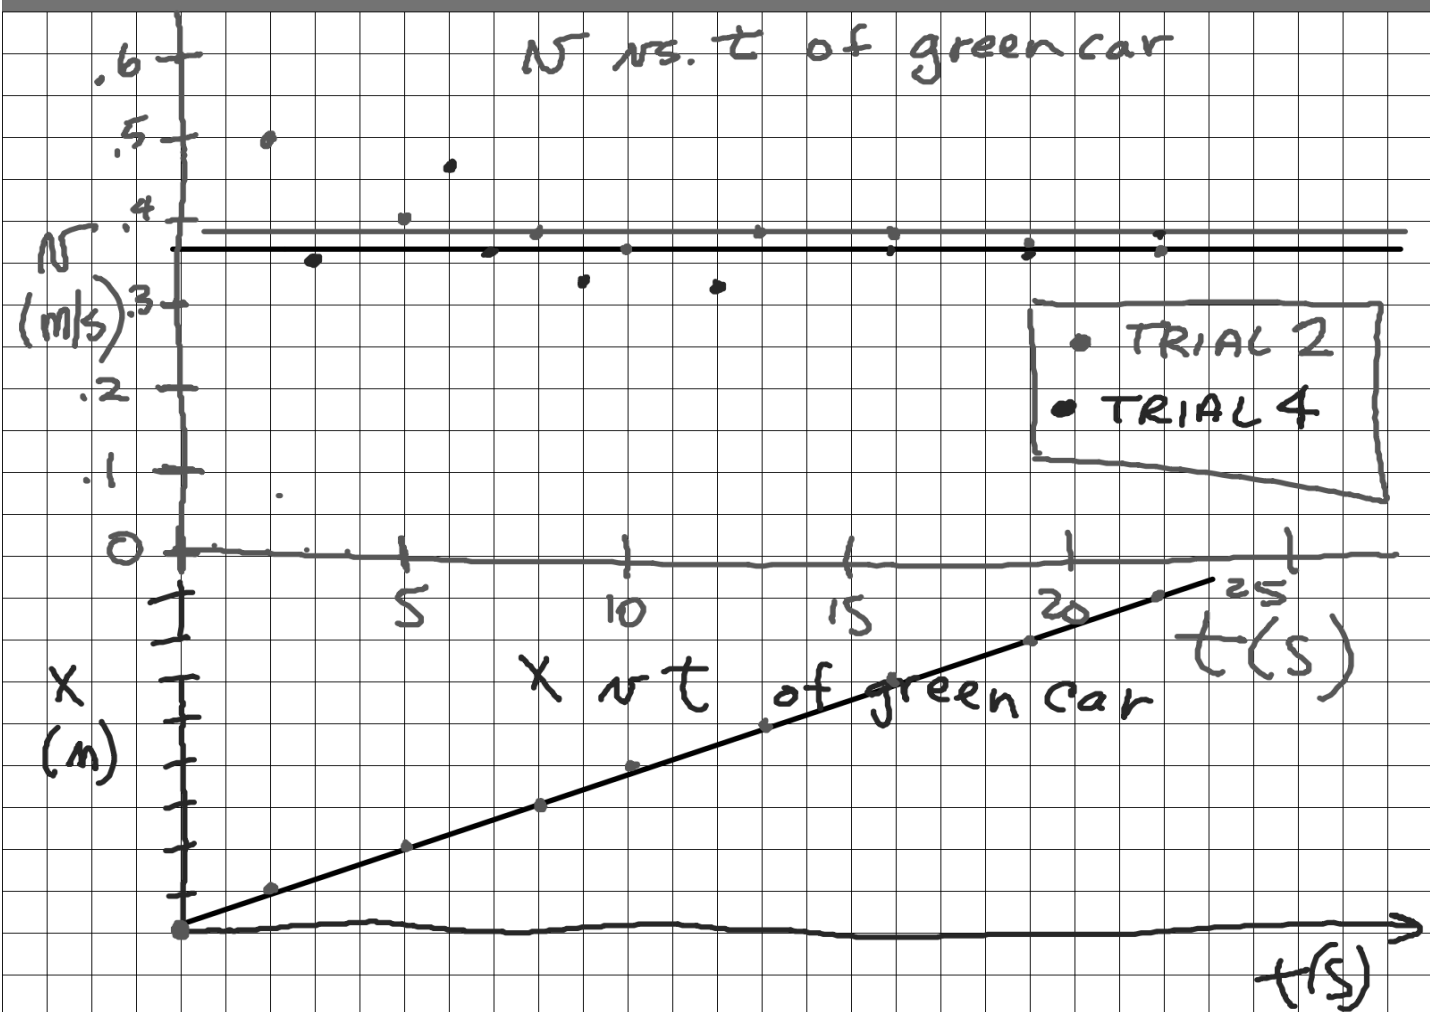 v vs. t of green car
.6
.5
.4
v
(m/s)
.3
.2
.1
0
TRIAL 2
TRIAL 4
5 10 15 20 25
t(s)
x v t of green car
x
(m)
t(s)